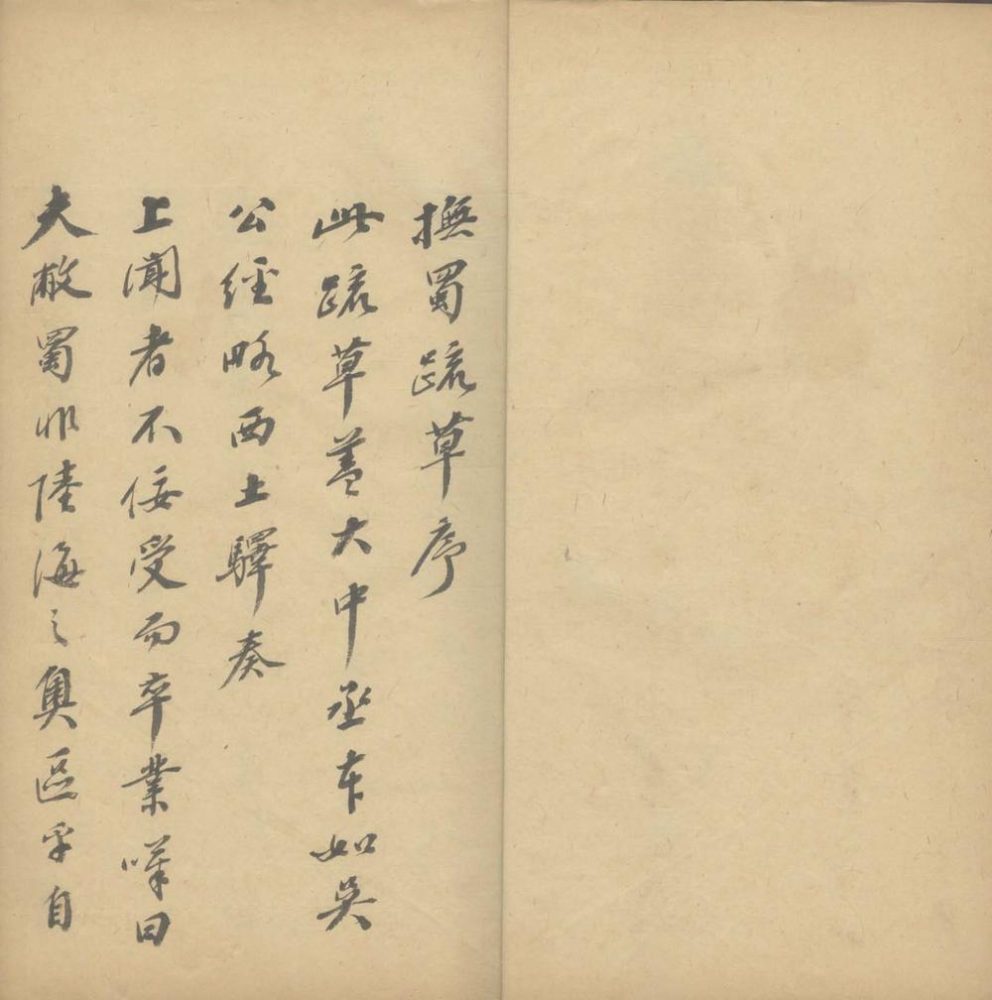 撫蜀疏草序
此疏草蓋大中丞本如吳
公經略西土驛奏
上聞者不佞受而卒業嘆曰
夫敝蜀非陸海之奧區乎自